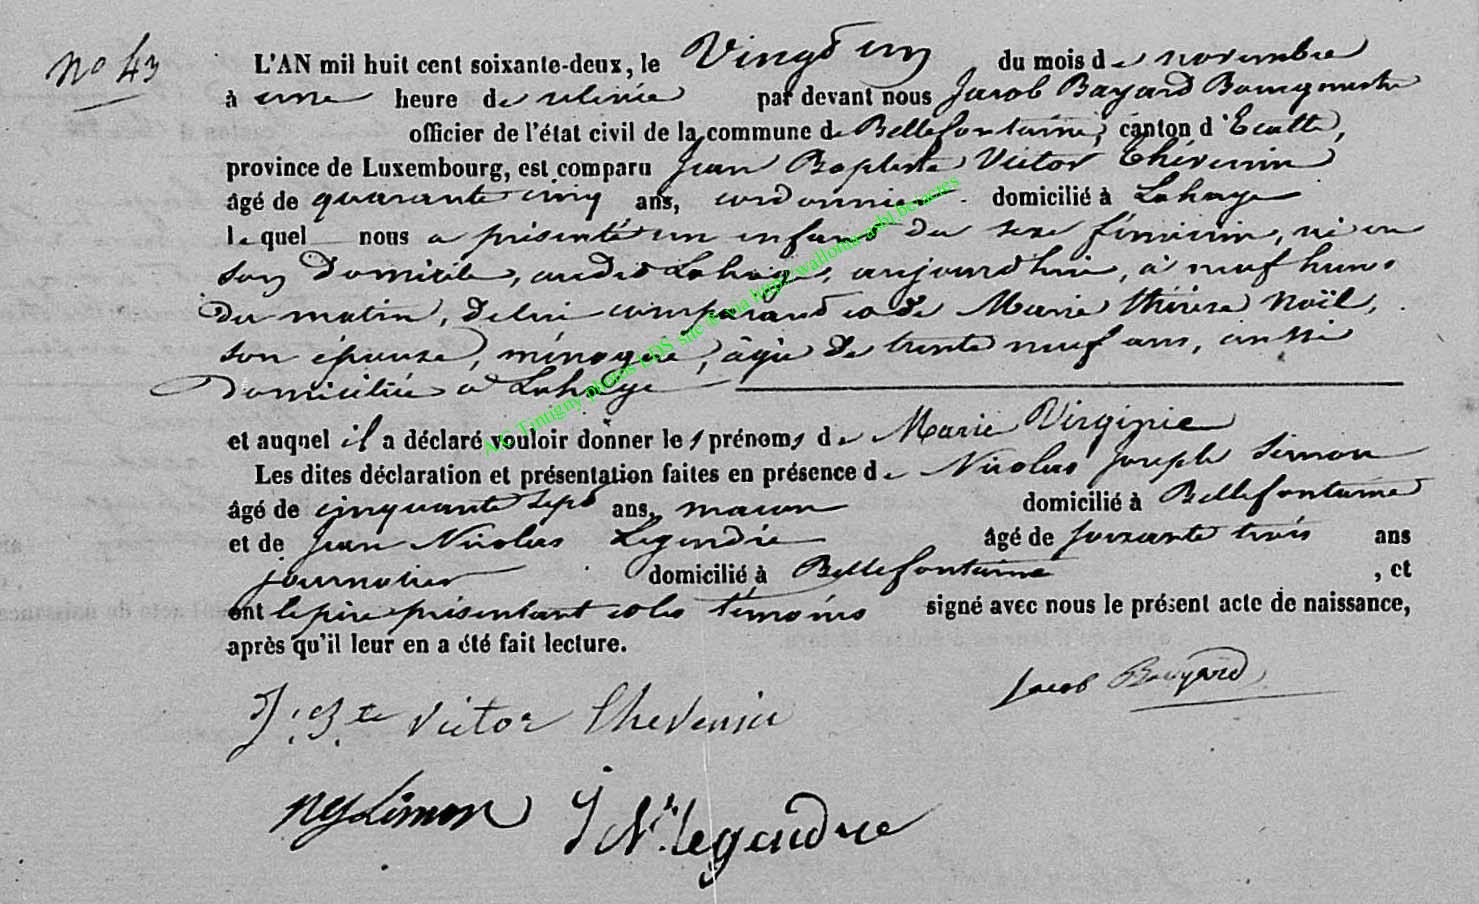 No 43
L'AN mil huit cent soixante-deux, le Vingt un du mois de novembre
à une heure de relevée par devant nous Jacob Bayard Bourgmestre
officier de l'état civil de la commune de Bellefontaine, canton d'Etalle,
province de Luxembourg, est comparu Jean Baptiste Victor Thévenin
âgé de quarante cinq ans, cordonnier domicilié à Lahage
lequel nous a présenté un enfant du sexe féminin, né en
son domicile, audit Lahage, aujourd'hui, à neuf heures
du matin, de lui comparant et de Marie thérèse Noël,
son épouse, ménagère, âgée de trente neuf ans, aussi
Domiciliée à Lahage
et auquel il a déclaré vouloir donner les prénoms de Marie Virginie
Les dites déclaration et présentation faites en présence de Nicolas Joseph Simon
âgé de cinquante sept ans, macon domicilié à Bellefontaine
et de Jean Nicolas Legendre âgé de soixante trois ans
journalier domicilié à Bellefontaine, et
ont le père présentant et les témoins signé avec nous le présent acte de naissance,
après qu'il leur en a été fait lecture.
Jacob Bayard
J. Bte Victor Thevenin
NJ Simon J Ns legendre
A/C Tintigny photos LDS site @ via http:/wallonia-asbl.be/actes